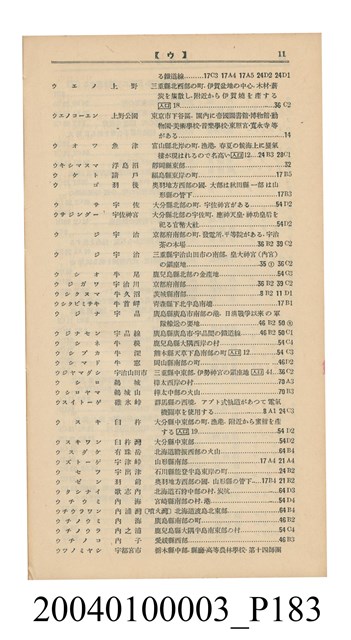 【ウ】 11
る鐵道線……17C3 17A4 17A5 24D2 24D1
ウエノ 上野 三重縣北西部の町・伊賀盆地の中心・木材・薪
炭を集散し、附近から伊賀燒を產する
人口18……36 C2
ウエノコーエン 上野公園 東京市下谷區、園內に帝國圖書館・博物館・動
物園・美術學校・音樂學校・東照宮・寬永寺等
がある……14
ウオツ 魚津 富山縣北部の町・漁港、春夏の候海上に蜃氣
樓が現はれるので名高い 人口12…24 B3 28C1
ウキシマヌマ 浮島沼 靜岡縣東部……32
ウケト 請戶 福島縣東部の町……17 B5
ウゴ 羽後 奧羽地方西部の國、大部は秋田縣一部は山
形縣の管下……17 B3
ウサ 宇佐 大分縣北部の町、宇佐神宮がある……54 D2
ウサジングー 宇佐神宮 大分縣北部の宇佐町、應神天皇・神功皇后を
祀る官幣大社……54 D2
ウジ 宇治 京都府南部の町、發電所、平等院がある、宇治
茶の本場……36 B2 39 C2
ウジ 宇治 三重縣宇治山田市の南部、皇大神宮(內宮)
の鎭座地……36 C2
ウシオ 牛尾 鹿兒島縣北部の金產地……54 C3
ウジガワ 宇治川 京都府南部……36 B2 39 C2
ウシクヌマ 牛久沼 茨城縣南部……8 B2 11 D1
ウシタビミサキ 牛首岬 青森縣下北半島南端……17 B1
ウジナ 宇品 廣島縣廣島市南部の港、日淸戰爭以來の軍
隊輸送の要地……46 B2 50
ウジナセン 宇品線 廣島縣廣島市・宇品間の鐵道線……46 B2 50 C1
ウシネ 牛根 鹿兒島縣大隅西岸の村……54 C4
ウシブカ 牛深 熊本縣天草下島南部の町 人口12……54 C3
ウシマド 牛窓 岡山縣南部の町……46 D2
ウジヤマダシ 宇治山田市 三重縣中東部、伊勢神宮の鎭座地 人口……36 C2
ウシロ 鵜城 樺太西岸の村……78 A3
ウシロヤマ 鵜城山 樺太中部の火山……78 B3
ウスイトーゲ 碓氷峠 群馬縣の西境、アプト式軌道があつて電氣
機關車を使用する……8 A1 24 C3
ウスキ 臼杵 大分縣中東部の町・漁港、附近から蜜柑を產
する 人口19……54 D2
ウスキワン 臼杵灣 大分縣中東部……54 D2
ウスダケ 有珠岳 北海道膽振西部の火山……64 B4
ウズトーゲ 宇津峠 山形縣南部……17 A4 21 A4
ウセツ 宇出津 石川縣能登半島東岸の町……24 B2
ウゼン 羽前 奧羽地方西部の國、山形縣の管下……17 B4 21 B2
ウタシナイ 歌志內 北海道石狩中部の村、炭坑……64 D3
ウチウミ 內海 宮崎縣南部の村、港……54 D4
ウチウラワン 內浦灣(噴火灣) 北海道渡島北東部……64 B4
ウチノウミ 內海 廣島縣南部の町……46 B2
ウチノウラ 內之浦 鹿兒島縣大隅半島南東部の村……54 C4
ウチノコ 內子 愛媛縣西部……46 B3
ウツノミヤシ 宇都宮市 栃木縣中部、縣廳・高等農林學校・第十四師團
20040100003_P183